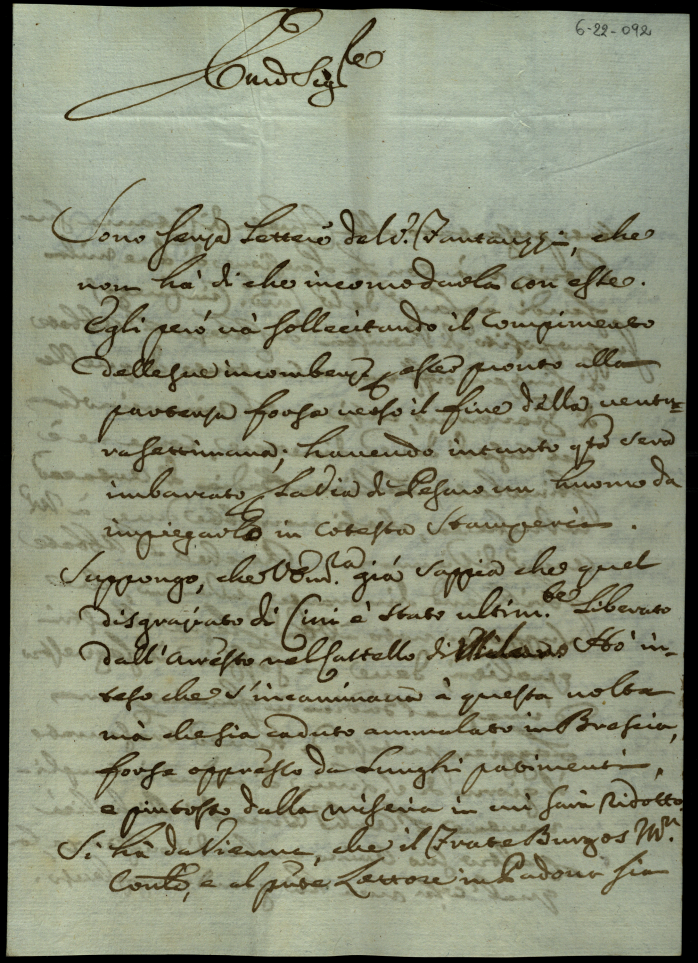 6-22-092
Sig.re
Sono senza Lettere del S.r Fantauzzi, che
non hà di che incomodarla con esse.
Egli però và sollecitando il Compimento
delle sue incombenze esser pronto alla
partenza forse verso il fine della ventu=
ra settimana; havendo intanto q.ta sera
imbarcato la via di Pesaro un huomo da
impiegarlo in cotesta Stamperia.
Suppongo, che già sappia che quel
disgraziato di Cini è stato ultim.te Liberato
dall'Arresto nel Castello di Milano. Hò in=
teso che s'incaminava à questa volta
mà che sia caduto ammalato in Brescia,
forse oppresso da Lunghi patimenti,
e piutosto dalla miseria in cui sarà ridotto
Si hà da Vienna, che il Frate Burgos M.r
Con.le, e al pnte Lettore in Padova sia